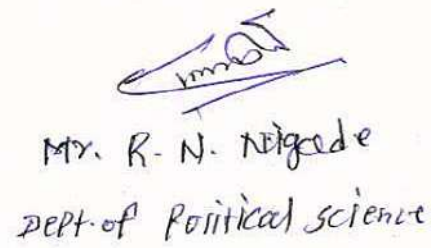 Mr. R. N. Nigade
Dept. of Political science